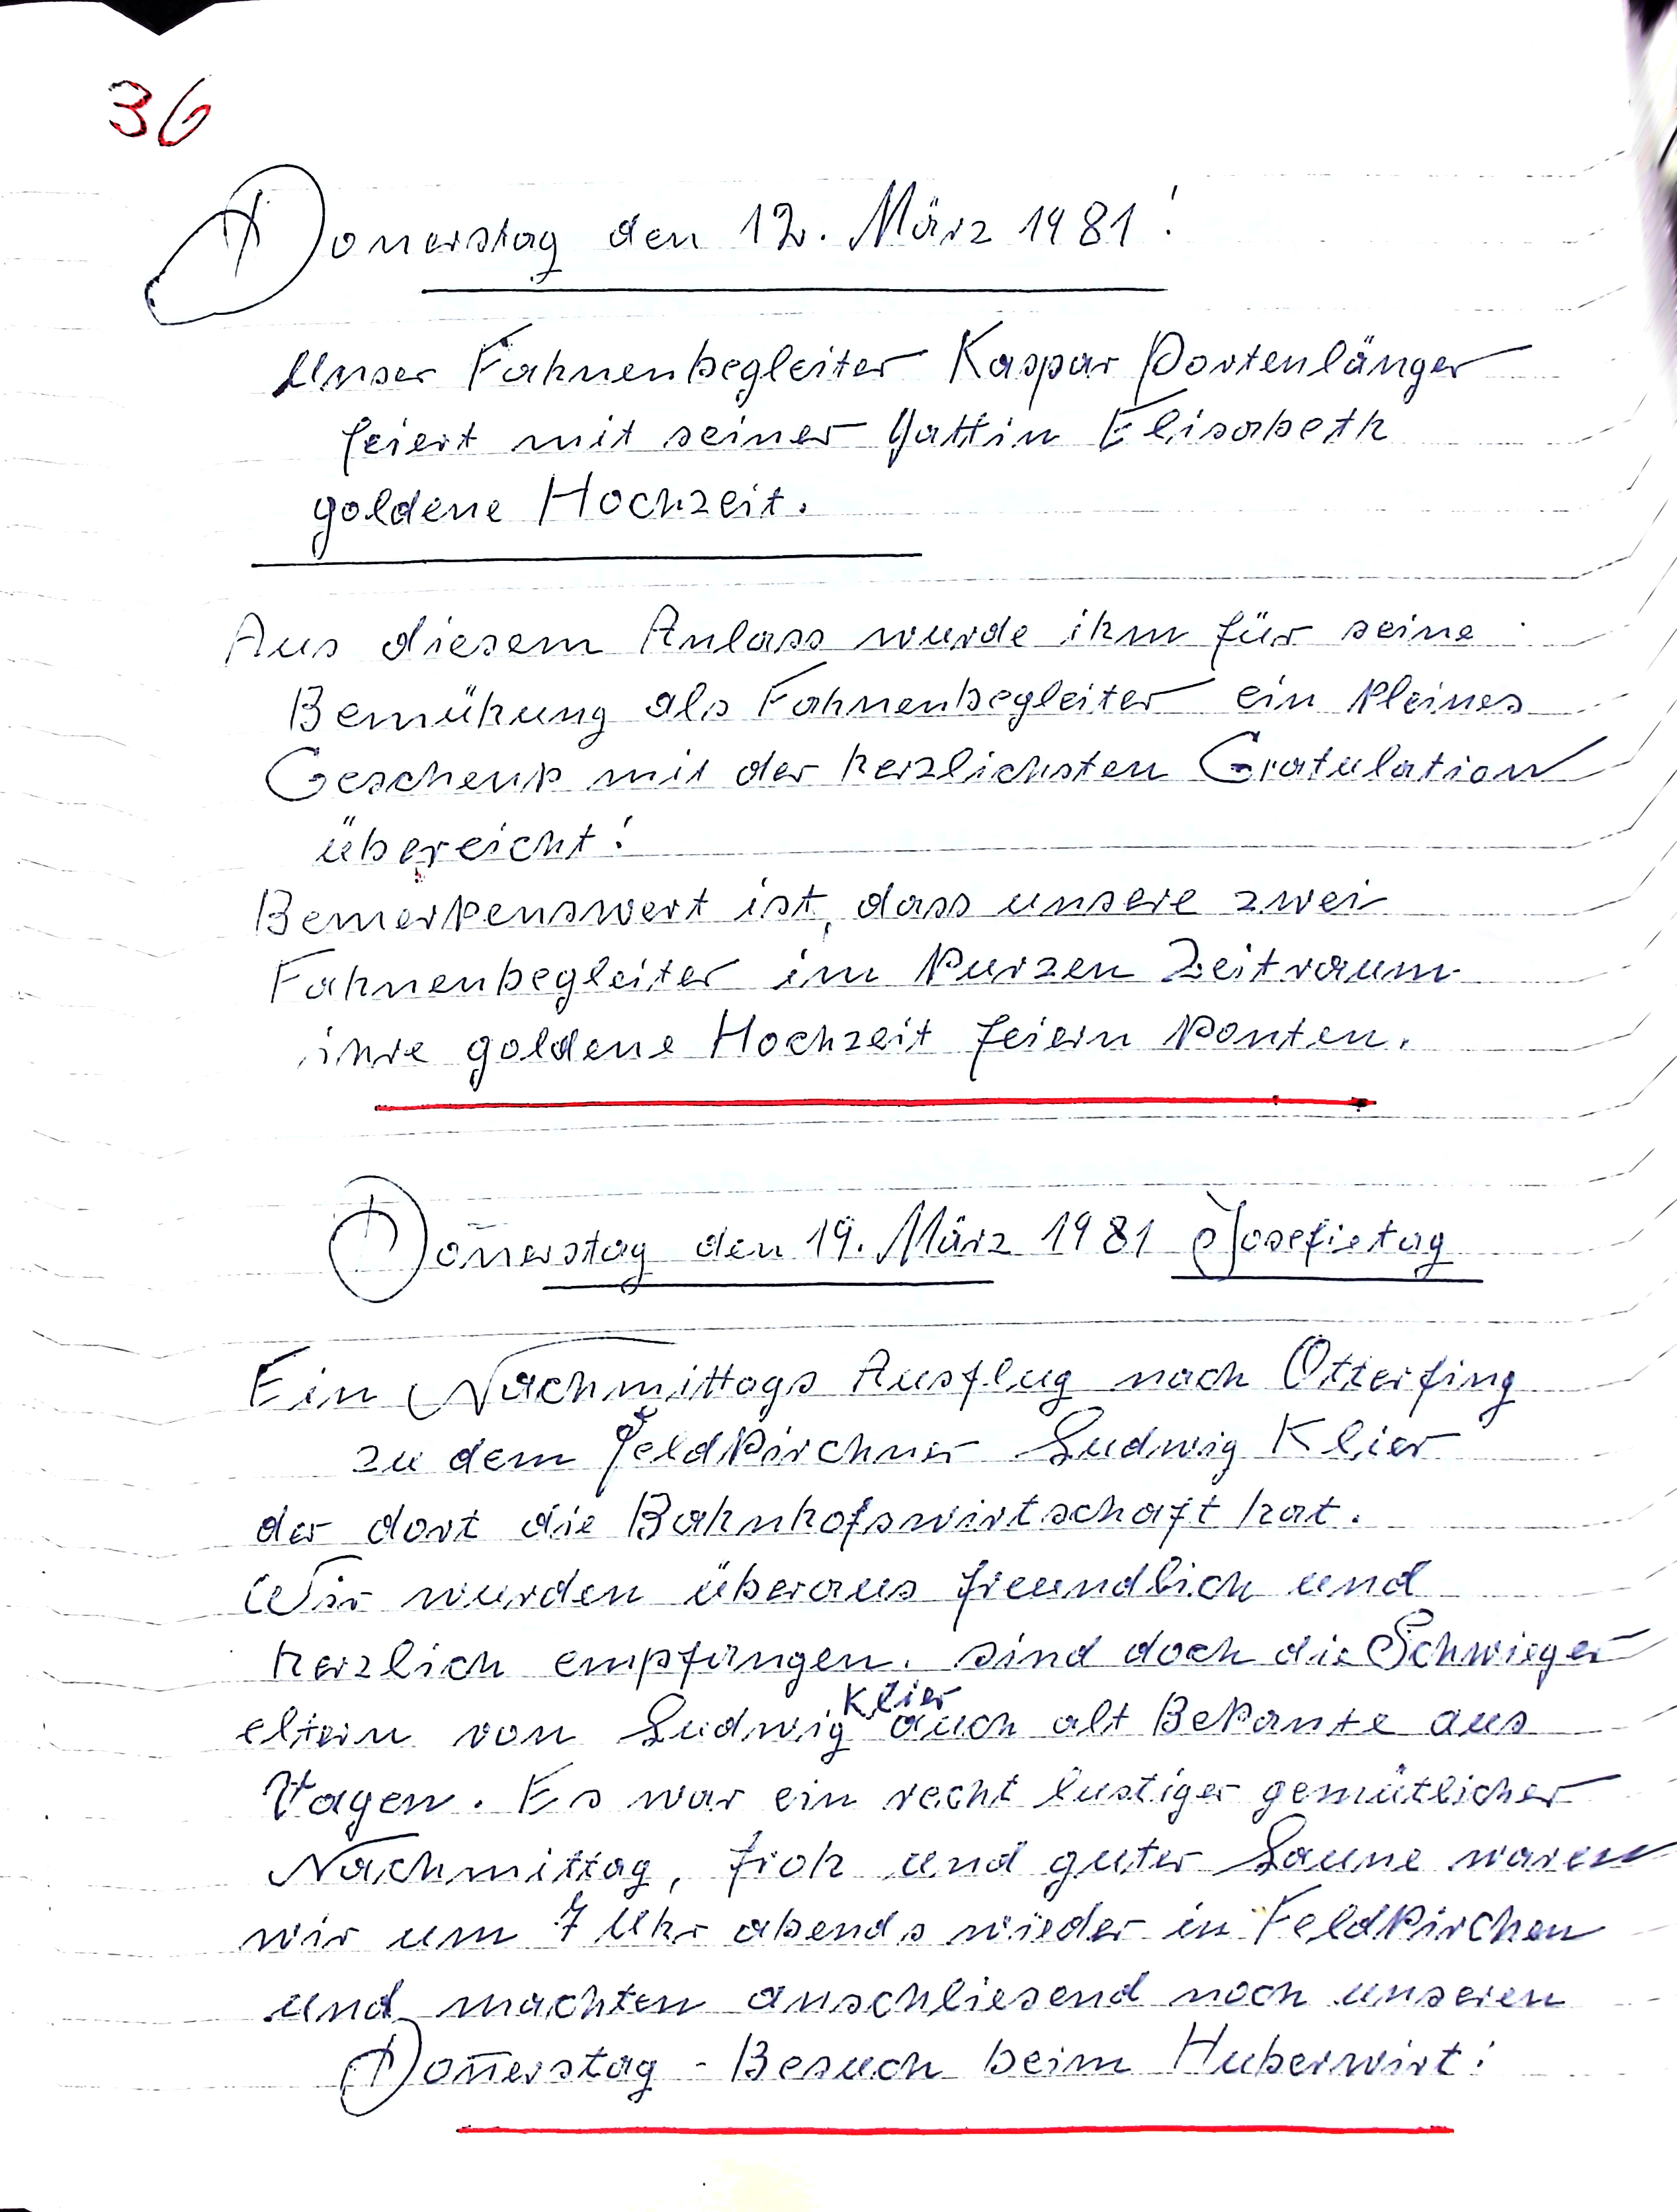 36
Donerstag den 12. März 1981!
Unser Fahnenbegleiter Kaspar Portenlänger
feiert mit seiner Gattin Elisabeth
goldene Hochzeit.
Aus diesem Anlass wurde ihm für seine
Bemühung als Fahnenbegleiter ein kleines
Geschenk mit der herzlichsten Gratulation
übereicht!
Bemerkenswert ist, dass unsere zwei
Fahnenbegleiter im kurzen Zeitraum
ihre goldene Hochzeit feiern konten.
Doñerstag den 19. März 1981 Josefietag
Ein Nachmittags Ausflug nach Otterfing
zu dem Feldkirchner Ludwig Klier
der dort die Bahnhofswirtschaft hat.
Wir wurden überaus freundlich und
herzlich empfangen. sind doch die Schwieger
eltern von Ludwig Klier auch alt Bekante aus
Vagen. Es war ein recht lustiger gemütlicher
Nachmittag, froh und guter Laune waren
wir um 7 Uhr abends wieder in Feldkirchen
und machten anschliesend noch unseren
Doñerstag - Besuch beim Huberwirt!